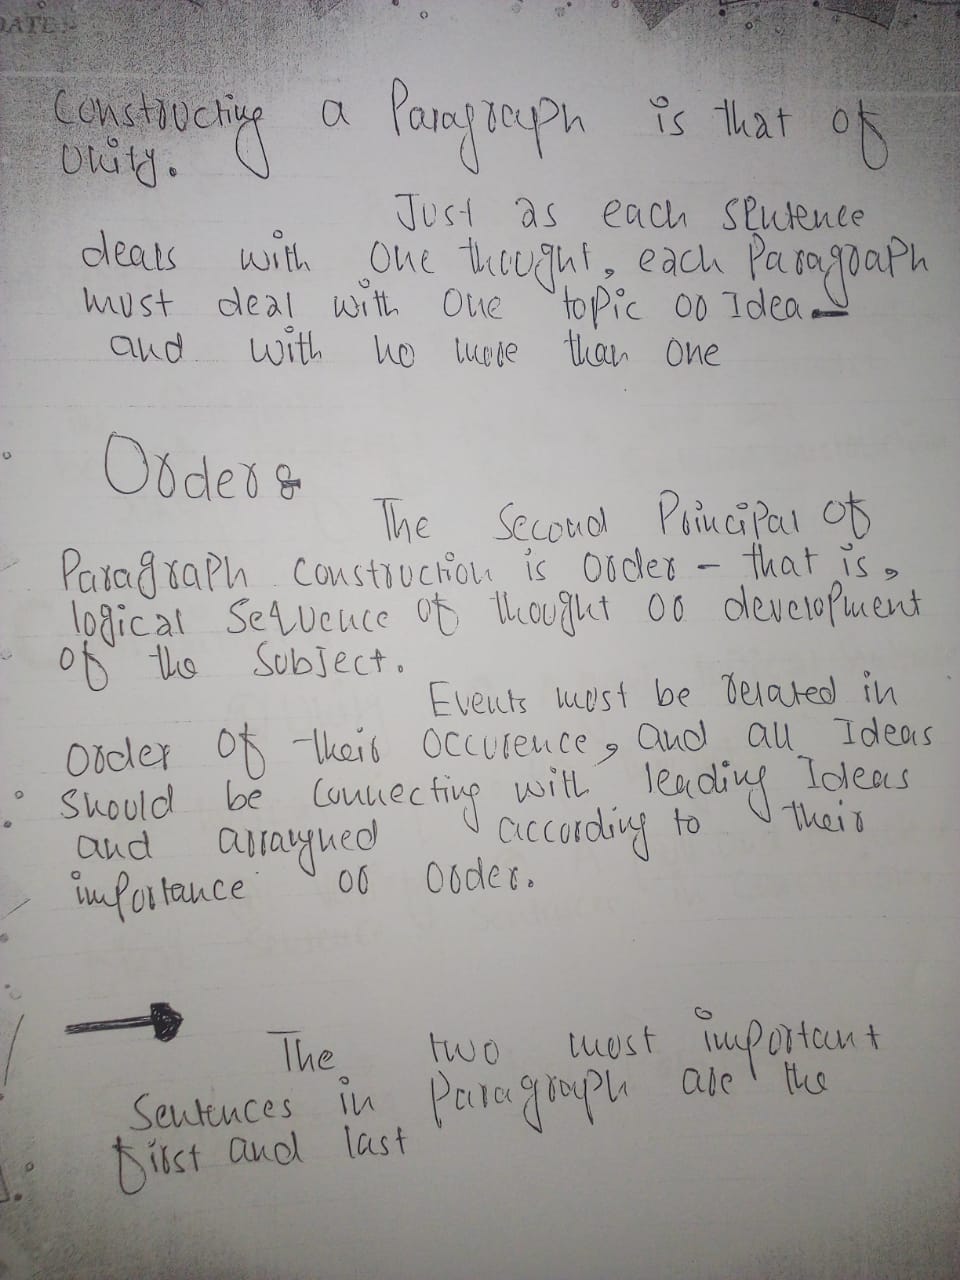 DATE:-
Constructing a Paragraph is that of
Unity.
Just as each sentence
deals with one thought, each Paragraph
must deal with one topic or Idea -
and with no more than one
Order :-
The Second Principal of
Paragraph construction is order - that is,
logical Sequence of thought or development
of the Subject.
Events must be related in
order of their occurence, and all Ideas
should be connecting with leading Ideas
and arraigned according to their
importance or order.
→
The two most important
Sentences in Paragraph are the
first and last